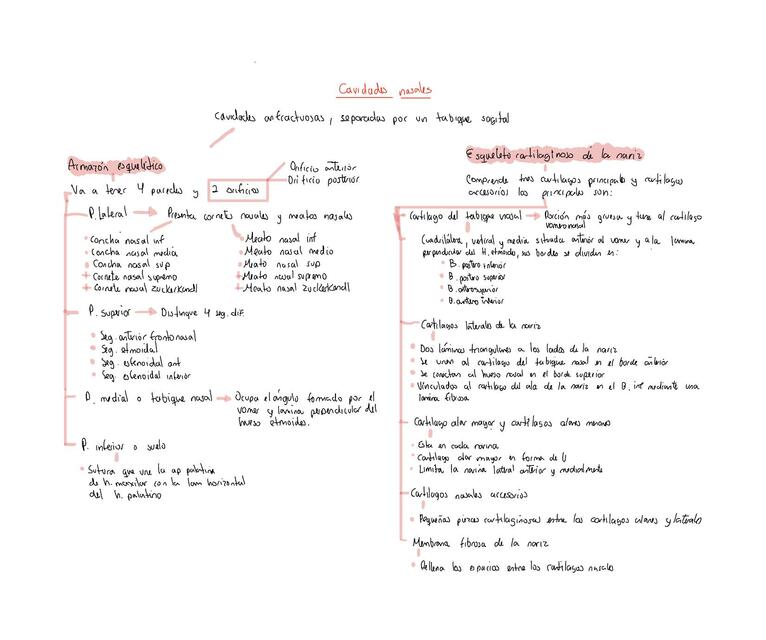 Cavidades nasales
Cavidades anfractuosas, separadas por un tabique sagital
Armazón esquelético
Va a tener 4 paredes y 2 orificios
Orificio anterior
Orificio posterior
P. lateral → Presenta cornetes nasales y meatos nasales
Concha nasal inf
Concha nasal media
Concha nasal sup
+ Cornete nasal supremo
+ Cornete nasal zuckerkandl
Meato nasal inf
Meato nasal medio
Meato nasal sup
+ Meato nasal supremo
+ Meato nasal zuckerkandl
P. superior → Distingue 4 seg. dif.
Seg. anterior frontonasal
Seg. etmoidal
Seg. esfenoidal ant
Seg. esfenoidal inferior
P. medial o tabique nasal → Ocupa el ángulo formado por el
vomer y lamina perpendicular del
hueso etmoides.
P. inferior o suelo
Sutura que une la ap palatina
de h. maxilar con la lam horizontal
del h. palatino
Esqueleto cartilaginoso de la nariz
Comprende tres cartilagos principales y cartilagos
accesorios los principales son:
Cartilago del tabique nasal → Porción más gruesa y tiene al cartilago
vomeronasal
Cuadrilátera, vertical y media situada anterior al vomer y a la lamina
perpendicular del H. etmoides, sus bordes se dividen en:
B. postero inferior
B. postero superior
B. anterosuperior
B. antero inferior
Cartilagos laterales de la nariz
Dos láminas triangulares a los lados de la nariz
Se unen al cartilago del tabique nasal en el borde anterior
Se conectan al hueso nasal en el borde superior
Vinculados al cartilago del ala de la nariz en el B. inf mediante una
lamina fibrosa
Cartilago alar mayor y cartilagos alares menores
Esta en cada narina
Cartilago alar mayor en forma de U
Limita la narina lateral anterior y medialmente
Cartilagos nasales accesorios
Pequeñas piezas cartilaginosas entre los cartilagos alares y laterales
Membrana fibrosa de la nariz
Rellena los espacios entre los cartilagos nasales